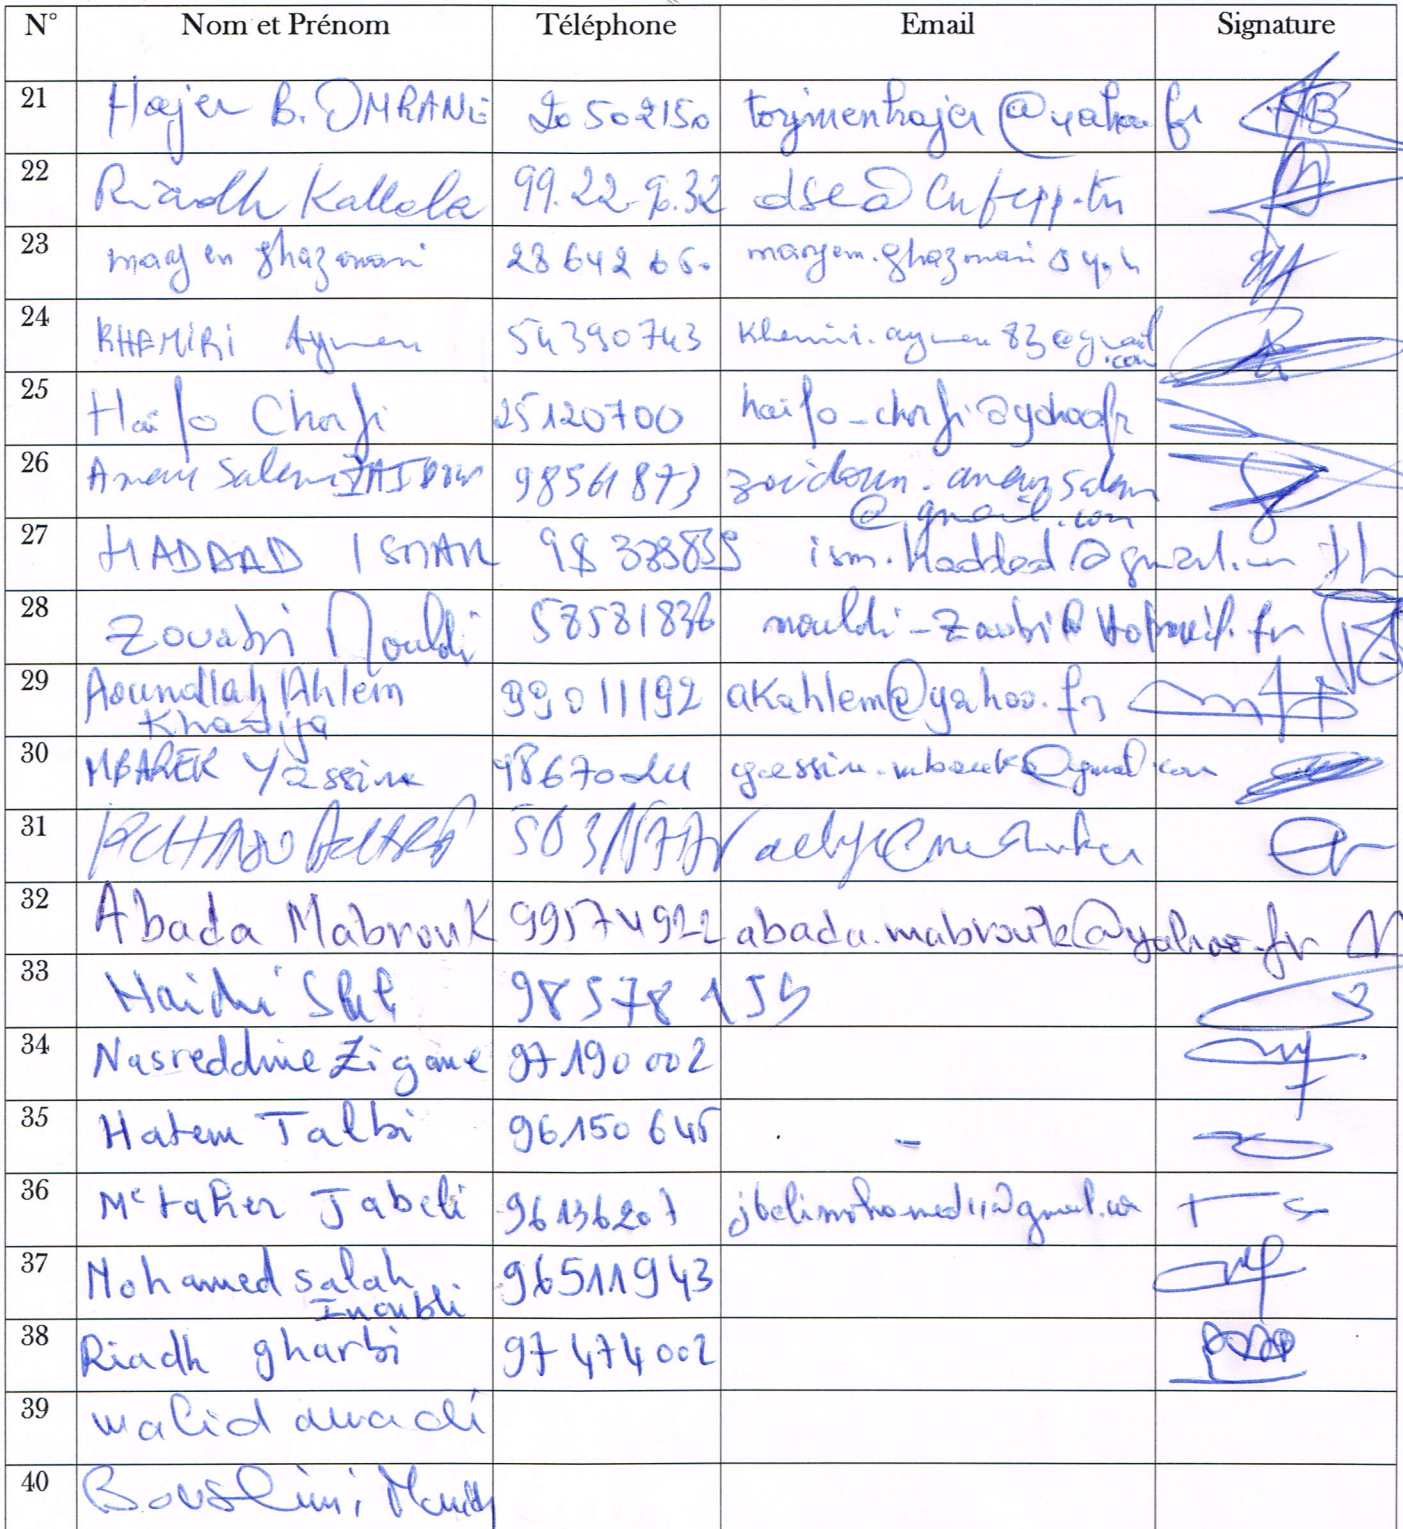 N° Nom et Prénom Téléphone Email Signature
21 Hajer B. OMRANE 20 502150 torjmenhajer@yahoo.fr
22 Riadh Kallela 99.22.9.32 dse@Cnfcpp.tn
23 maryem ghazouani 28 642 660
24 KHEMIRI Aymen 54 390743 khemiri.aymen83@gmail
.com
25 Haifa Chorfi 25120700 haifa_chorfi@yahoo.fr
26 Ameur Salem ZAIDOUN 98561873 zaidoun.ameursalem
@gmail.com
27 HADDAD ISMAIL 98 ism.haddad@gmail.com
28 Zouabi Mouldi 58581836 mouldi-Zouabi@Hotmail.fr
29 Aoundllah Ahlem 99011192 akahlem@yahoo.fr
Khadija
30 MBAREK Yassine yassine.mbarek@gmail.com
31
32 Abada Mabrouk 99574922 abada.mabrouk@yahoo.fr
33 98578 155
34 Nasreddine Zigane 97 190 002
35 Hatem Talbi 96 150 645 -
36 Mᵉ taher Jabeli 96136207 jbelimohamed11@gmail.com
37 Mohamed salah 96511943
Inoubli
38 Riadh gharbi 97 474 002
39 walid awadi
40 Bouslimi